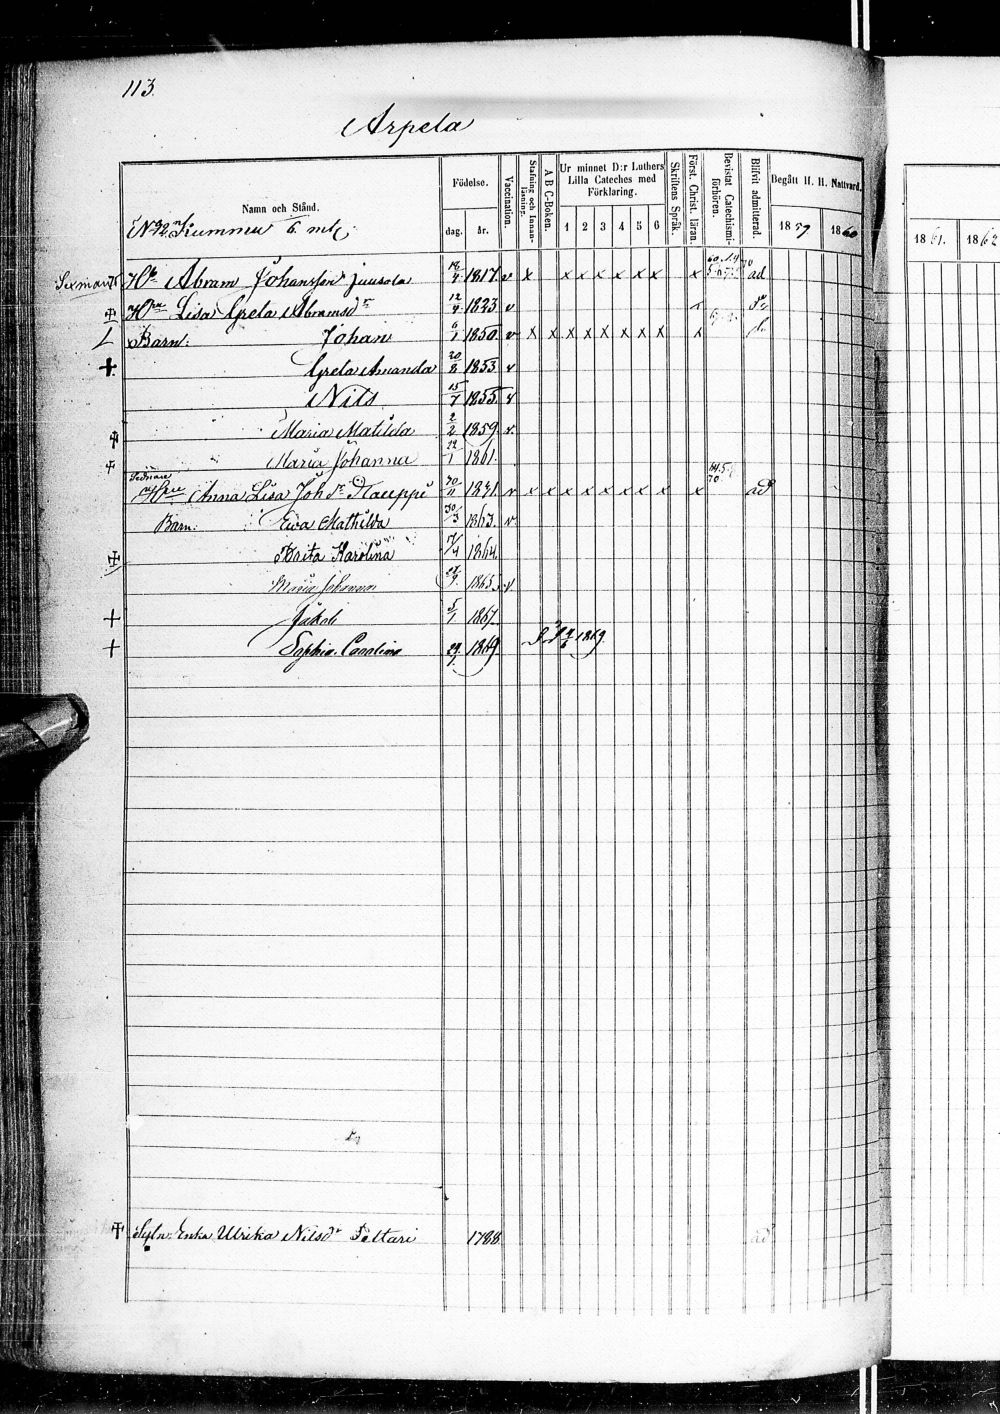 113
Arpela
Namn och Stånd.
Födelse.
dag. år.
Vaccination.
Stafning och Innanläsning.
A B C-Boken.
Ur minnet D:r Luthers Lilla Cateches med Förklaring.
1 2 3 4 5 6
Skriftens Språk.
Först. Christ. läran.
Bevistat Catechismiförhören.
Blifvit admitterad.
Begått H. H. Nattvard.
1859 1860
1861. 1862
N 92 Kummu 6 mtl
Sexman Abram Johansson Juusola 18/4 1817. v x x x x x x x x ad
Lisa Greta Abramsd:r 12/4 1823 v
Barn: Johan 6/1 1850. v x x x x x x x x x
+ Greta Amanda 20/8 1853 v
Nils 15/7 1855. v
Maria Matilda 2/2 1859. v.
Maria Johanna 22/1 1861.
Sednare Hru Anna Lisa Joh:dr Kauppi 1831. v x x x x x x x x x ad
Barn: Ewa Mathilda 30/3 1863. v
Brita Karolina 1864.
Maria Johanna 1865. v
+ Jakob 5/1 1867.
+ Sophia Carolina 1869 1869.
Enka Ulrika Nilsd:r 1788 ad